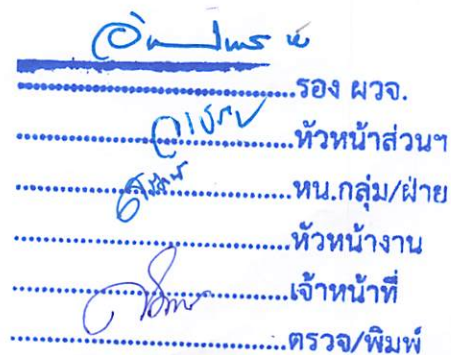 ....................รอง ผวจ.
....................หัวหน้าส่วนฯ
....................หน.กลุ่ม/ฝ่าย
....................หัวหน้างาน
....................เจ้าหน้าที่
....................ตรวจ/พิมพ์